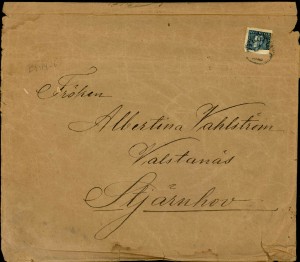 Fröken
Albertina Vahlström
Valstanäs
Stjärnhov